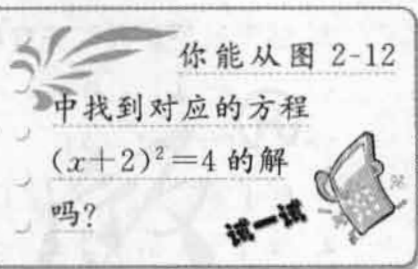 你能从图 2-12
中找到对应的方程
(x+2)²=4 的解
吗?
试一试